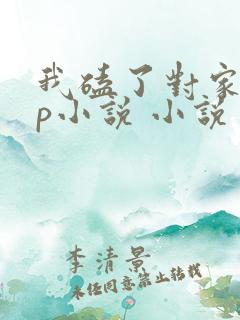 我磕了對家
p小說 小說
李清景
未经同意禁止转载